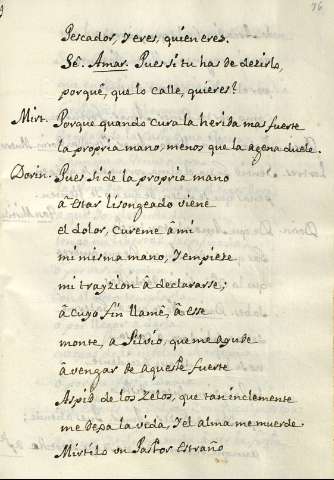 76
Pescador, y eres, quien eres.
Sê. Amar. Pues si tu has de dezirlo,
porquê, que lo calle, quieres?
Mirt. Porque quando cura la herida mas fuerte
la propria mano, menos que la agena duele.
Dorin. Pues si de la propria mano
â estar lisongeado viene
el dolor, cureme â mi
mi misma mano, y empieze
mi trayzion â declararse;
â cuyo fin llamê, â esse
monte, a Silvio, que me ayude
â vengar de aqueste fuerte
Aspid de los Zelos, que tan inclemente
me dexa la vida, y el alma me muerde.
Mirtilo un Pastor Estraño